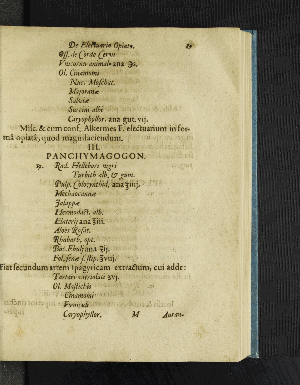 De Electuariis Opiatis. 89
Oss. de Corde Cervi
Unicornu animal. ana ʒs.
Ol. Cinamomi
Nuc. Moschat.
Majoranæ
Salviæ
Succini albi
Caryophyllor. ana gut. vij.
Misc. & cum conf. Alkermes F. electuarium in for-
mâ opiatâ, quod magni faciendum.
III.
PANCHYMAGOGON.
Rad. Hellebori nigri
Turbith alb. & gum.
Pulp. Colocynthid. ana ʒiiij.
Mechoacannæ
Jalappæ
Hermodact. alb.
Elaterij ana ʒiij.
Aloës Rosat.
Rhabarb. opt.
Rad. Ebuli ana ʒij.
Fol. senæ s. stip. ʒviij.
Fiat secundum artem spagyricam extractum, cui adde:
Tartari vitriolati ʒvj.
Ol. Mastichis
Cinamomi
Fœniculi
Caryophyllor. M Auran-